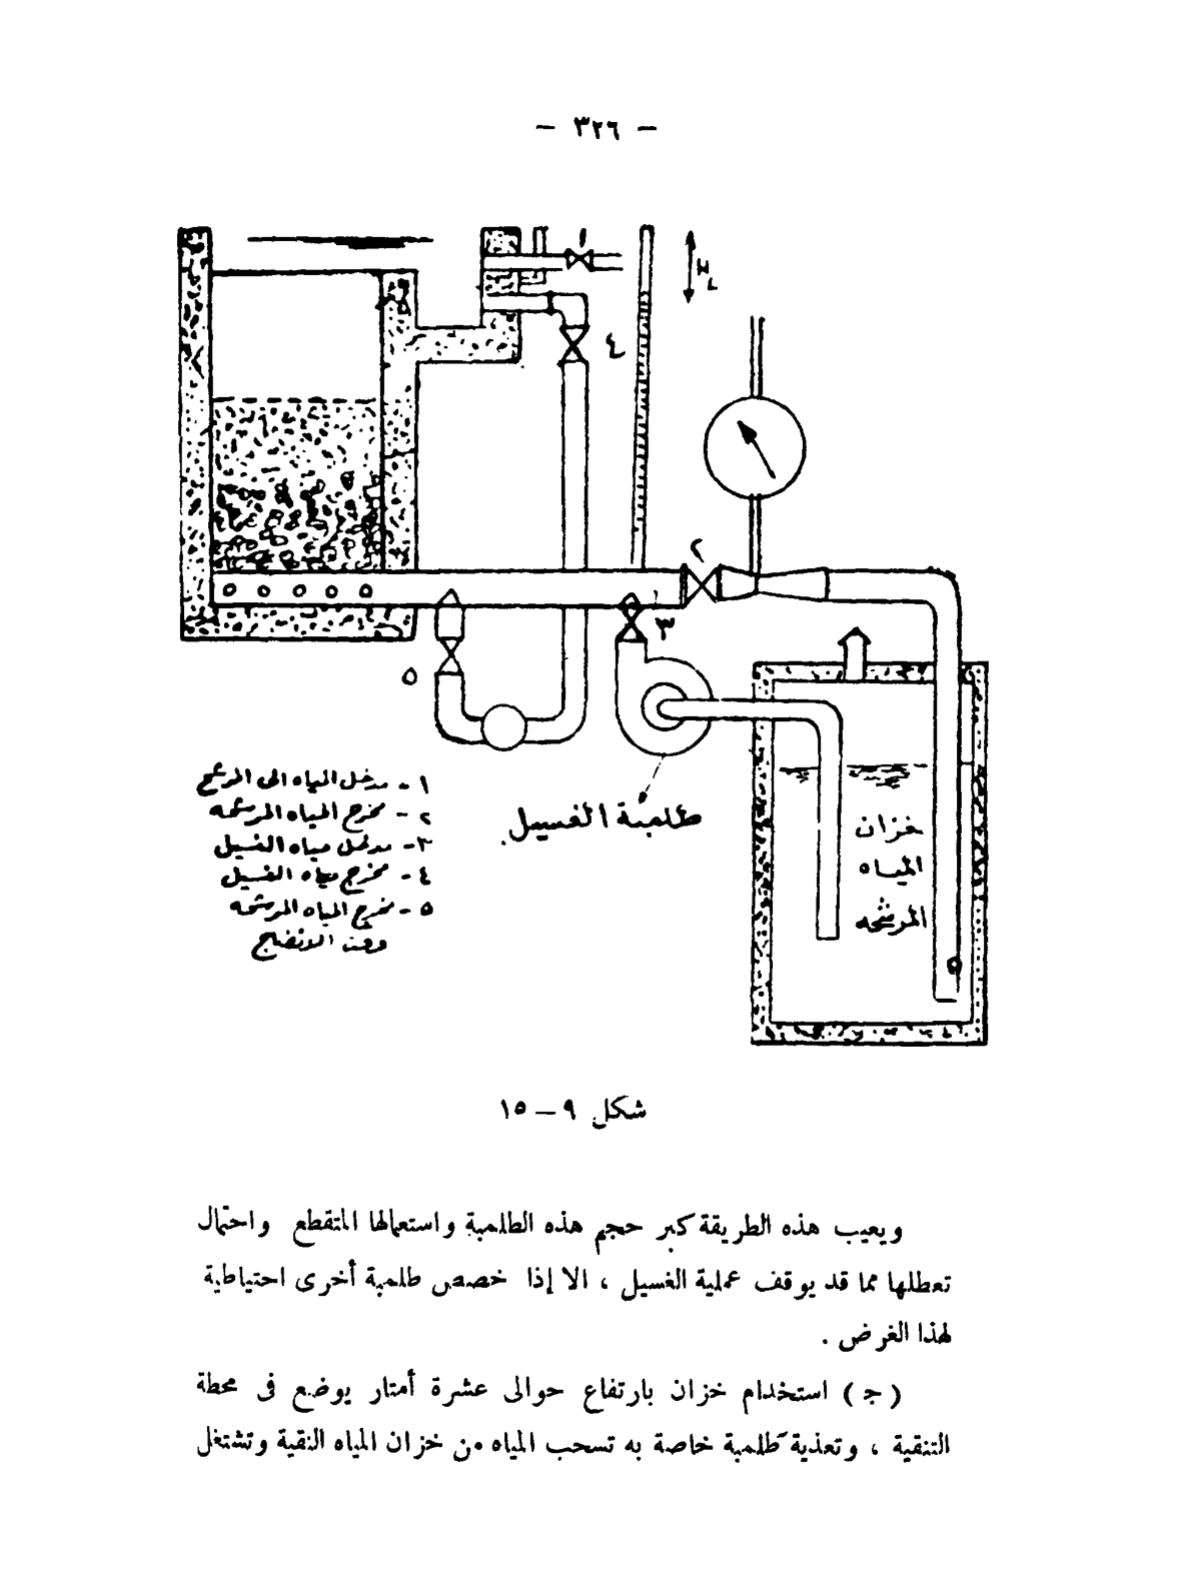 — ٣٢٦ —
١
H L
٤
٢
٣
٥
١- مدخل المياه الى المرشح
٢- مخرج المياه المرشحه
٣- مدخل مياه الغسيل
٤- مخرج مياه الغسيل
٥- مخرج المياه المرشحه
وقت الانضاج
طلمبة الغسيل
خزان
المياه
المرشحه
شكل ٩ — ١٥
ويعيب هذه الطريقة كبر حجم هذه الطلمبة واستعمالها المتقطع واحتمال
تعطلها مما قد يوقف عملية الغسيل ، الا إذا خصص طلمبة أخرى احتياطية
لهذا الغرض .
( ج ) استخدام خزان بارتفاع حوالى عشرة أمتار يوضع فى محطة
التنقية ، وتعذية طلمبة خاصة به تسحب المياه من خزان المياه النقية وتشتغل